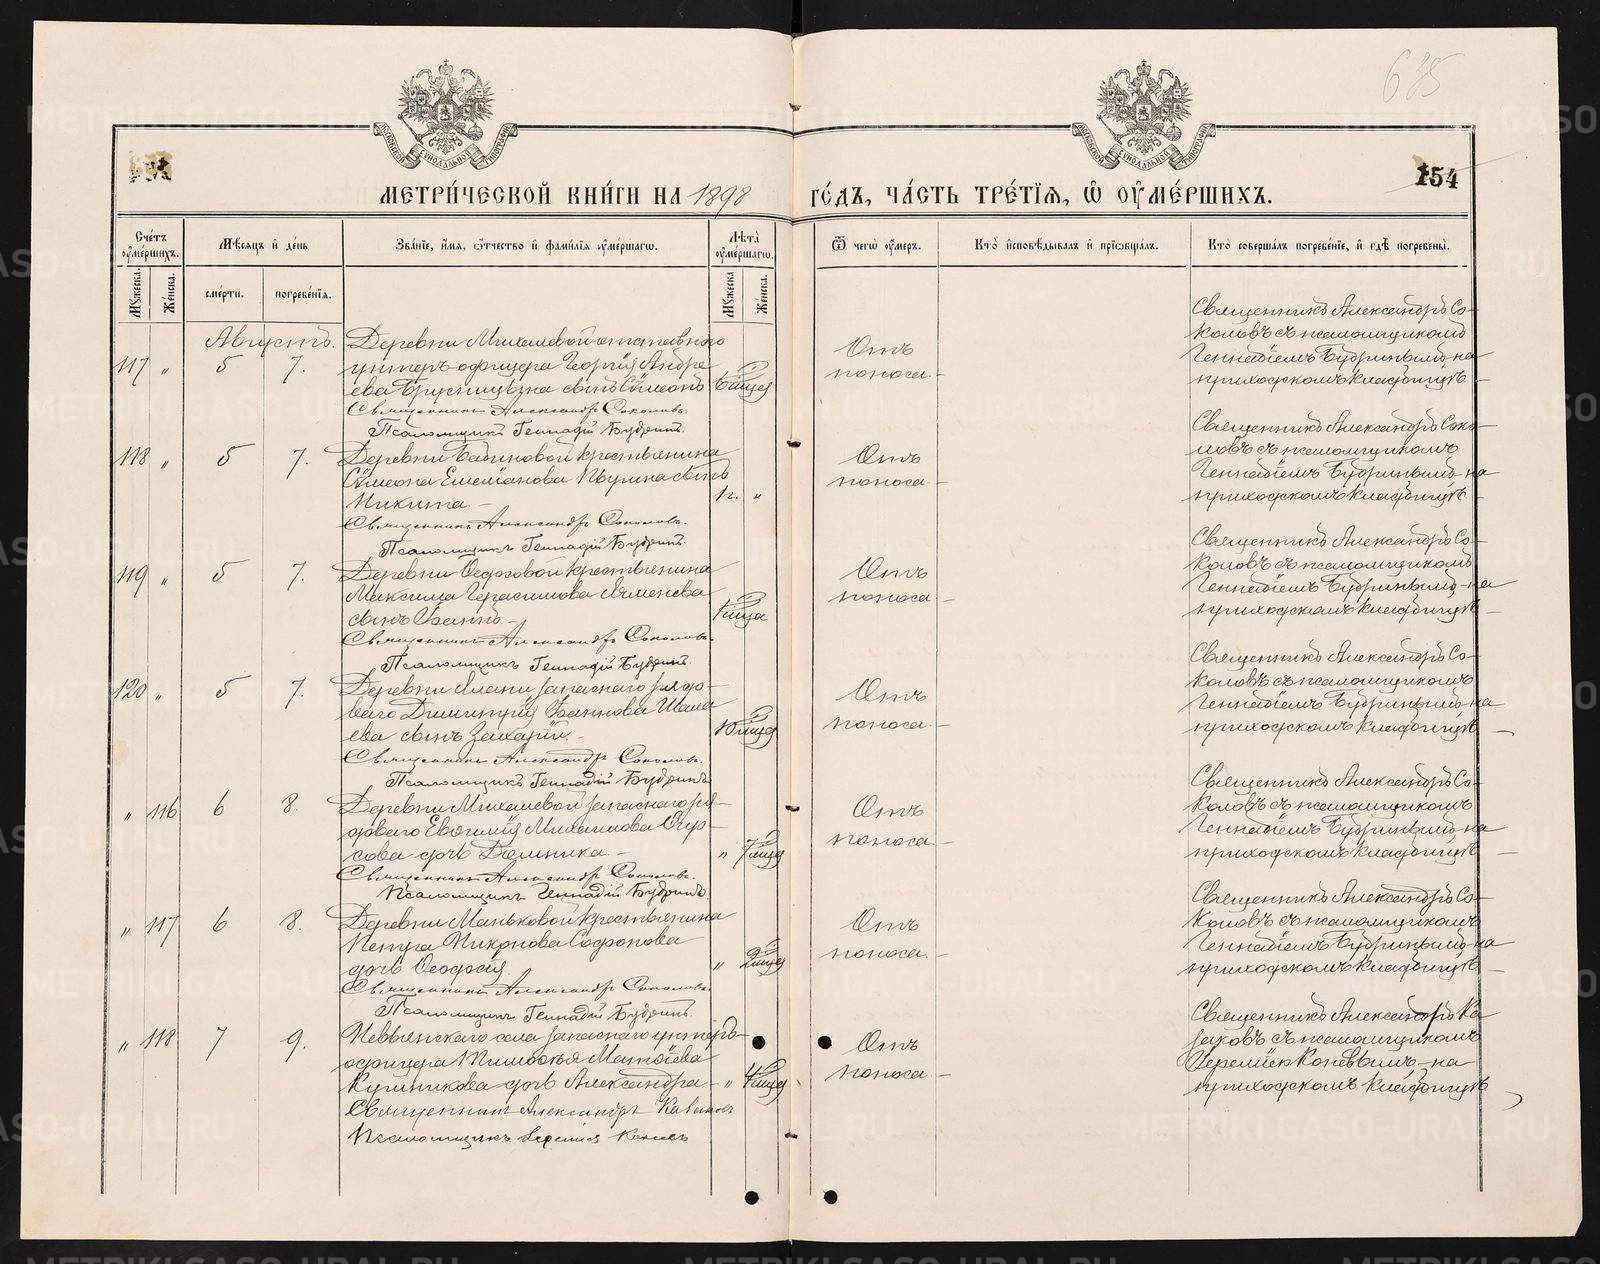 635
154
МЕТРИ́ЧЕСКОЙ КНИ́ГИ НА 1898 ГО́ДЪ, ЧА́СТЬ ТРЕ́ТІЯ, Ѡ ОУМЕ́РШИХЪ.
Сче́тъ оумершихъ.
Мѣсяцъ и де́нь
Зва́ніе, и́мя, о́тчество и фами́лія оуме́ршагѡ.
Лѣта̀ оуме́ршагѡ.
Ѿ чегѡ̀ оу́меръ.
Кто̀ исповѣ́дывалъ и прїѡбща́лъ.
Кто̀ соверша́лъ погребе́ніе, и гдѣ̀ погребены̀.
Му́жеска.
Же́нска.
сме́рти.
погребе́нія.
Му́жеска
Же́нска.
Августъ.
117 „ 5 7.
Деревни Михалевой отставного
унтеръ-офицера Георгія Андре
ева Брусницына сынъ Сѵмеонъ
Священникъ Александръ Соколовъ.
Псаломщикъ Геннадій Бубринъ.
Отъ
поноса. –
Священникъ Александръ Со-
коловъ съ псаломщикомъ
Геннадіемъ Бубринымъ на
приходскомъ кладбищѣ –
118 „ 5 7.
Деревни Бабиновой крестьянина
Сѵмеона
сынъ
Никита. –
Священникъ Александръ Соколовъ.
Псаломщикъ Геннадій Бубринъ.
„
Отъ
поноса –
Священникъ Александръ Соко-
ловъ съ псаломщикомъ
Геннадіемъ Бубринымъ на
приходскомъ кладбищѣ –
119 „ 5 7.
Деревни Ѳедосовой крестьянина
Максима Герасимова Ячменева
сынъ Іоаннъ. –
Священникъ Александръ Соколовъ.
Псаломщикъ Геннадій Бубринъ.
Отъ
поноса –
Священникъ Александръ Со-
коловъ съ псаломщикомъ
Геннадіемъ Бубринымъ на
приходскомъ кладбищѣ –
120 „ 5 7.
Деревни запаснаго рядо-
ваго Димитрія Іоаннова
ева сынъ Захарій. –
Священникъ Александръ Соколовъ.
Псаломщикъ Геннадій Бубринъ
Отъ
поноса. –
Священникъ Александръ Со-
коловъ съ псаломщикомъ
Геннадіемъ Бубринымъ на
приходскомъ кладбищѣ –
„ 116 6 8.
Деревни Михалевой запаснаго ря-
доваго Евѳимія Михаилова
сова дочь Домника. –
Священникъ Александръ Соколовъ.
Псаломщикъ Геннадій Бубринъ.
„
Отъ
поноса. –
Священникъ Александръ Со-
коловъ съ псаломщикомъ
Геннадіемъ Бубринымъ на
приходскомъ кладбищѣ –
„ 117 6 8.
Деревни Маньковой крестьянина
Петра Никонова Софонова
дочь Ѳеодосія
Священникъ Александръ Соколовъ.
Псаломщикъ Геннадій Бубринъ.
„
Отъ
поноса. –
Священникъ Александръ Со-
коловъ съ псаломщикомъ
Геннадіемъ Бубринымъ на
приходскомъ кладбищѣ –
„ 118 7 9.
Невьянскаго села запаснаго унтеръ-
офицера Тимоѳея Матѳіева
Кушникова дочь Александра. –
Священникъ Александръ
Псаломщикъ Іеремія Коневъ
„
Отъ
поноса –
Священникъ Александръ Ка
заковъ съ псаломщикомъ
Іереміею Коневымъ на
приходскомъ кладбищѣ